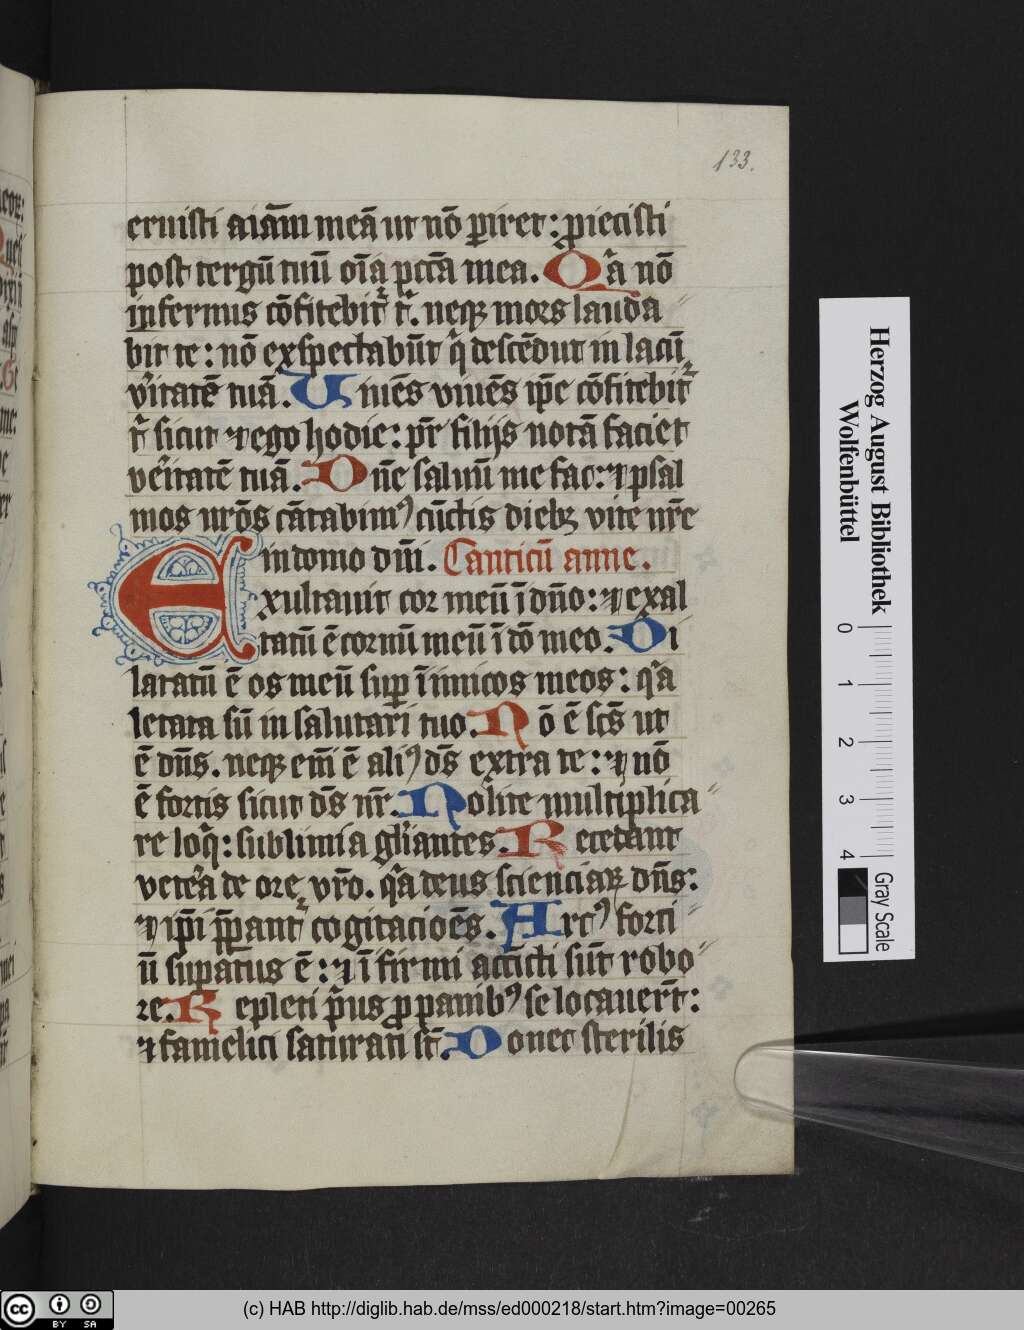 133.
eruisti aiãm meã ut nõ ꝑiret : ꝓiecisti
post tergũ tuũ oĩa pccã mea. Qͣa nõ
infernus cõfitebit᷑ t̃. neqꝫ mors lauda
bit te : nõ exspectabũt q̃ descẽdut in lacũ
v̾itatẽ tuã. Uiuẽs viuẽs ip̃e cõfitebit᷑
t̃ sicut ⁊ ego hodie : pr̃ filijs notã faciet
ve̾itatẽ tuã. Dñe saluũ me fac : ⁊ psal
mos nr̃os cãtabimꝰ cũctis diebꝫ vite nr̃e
in domo dñi. Canticũ anne.
Exultauit cor meũ ĩ dño : ⁊ exal
tatũ ẽ cornũ meũ ĩ do᷑ meo. Di
latatũ ẽ os meũ suꝑ ĩimicos meos : qͣa
letata sũ in salutari tuo. Nõ ẽ sc̃s ut
ẽ dñs. neqꝫ em̃ ẽ aliꝰ ds̃ extra te : ⁊ nõ
ẽ fortis sicut ds̃ nr̃. Nolite multiplica
re loqͣ : sublimia gl̃iantes. Recedant
vete̾a de ore vr̃o. qͣa deus scienciaꝝ dñs :
⁊ ip̃i p̃ꝑant᷑ cogitacioẽs. Arcꝰ forti
ũ suꝑatus ẽ : ⁊ ĩfirmi accĩcti sũt robo
re. Repleti p̃us ꝓ panibꝰ se locauer̃t :
⁊ famelici saturati st̃. Donec sterilis
Herzog August Bibliothek
Wolfenbüttel
0 1 2 3 4
Gray Scale
cc BY SA
(c) HAB http://diglib.hab.de/mss/ed000218/start.htm?image=00265